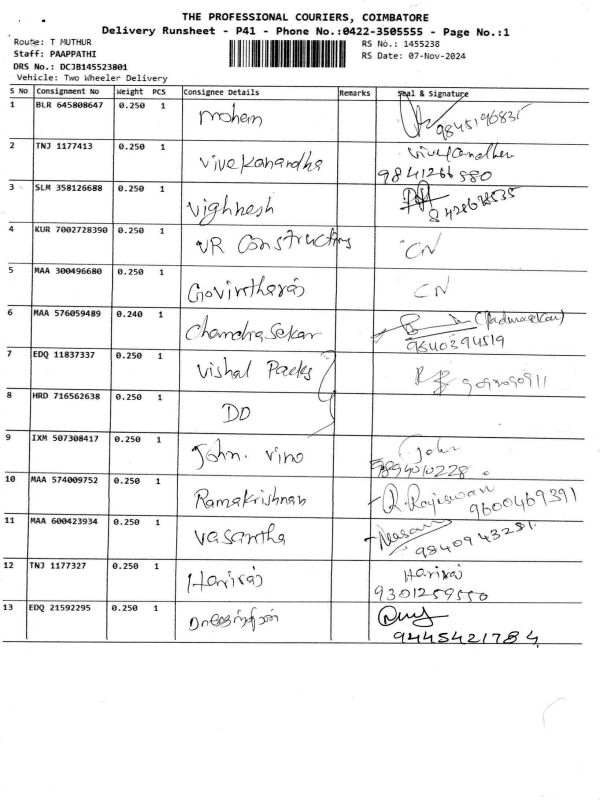 THE PROFESSIONAL COURIERS, COIMBATORE
Delivery Runsheet - P41 - Phone No.:0422-3505555 - Page No.:1
Route: T MUTHUR
RS No.: 1455238
Staff: PAAPPATHI
RS Date: 07-Nov-2024
DRS No.: DCJB145523801
Vehicle: Two Wheeler Delivery
S No Consignment No Weight PCS Consignee Details Remarks Seal & Signature
1 BLR 645808647 0.250 1 mohan 9845196835
2 TNJ 1177413 0.250 1 Vivekanandha
9841266580
3 SLM 358126688 0.250 1 Vighnesh
4 KUR 7002728390 0.250 1 VR Constructions CN
5 MAA 300496680 0.250 1 CN
6 MAA 576059489 0.240 1 Chandrasekar
9840394519
7 EDQ 11837337 0.250 1 Vishal Packs
8 HRD 716562638 0.250 1 DO
9 IXM 507308417 0.250 1 John. Vino John
9894010228
10 MAA 574009752 0.250 1 Ramakrishnan R. Rajeswari
9600469391
11 MAA 600423934 0.250 1 Vasantha
9840943281
12 TNJ 1177327 0.250 1 Hariraj Hariraj
9301259550
13 EDQ 21592295 0.250 1
9445421784